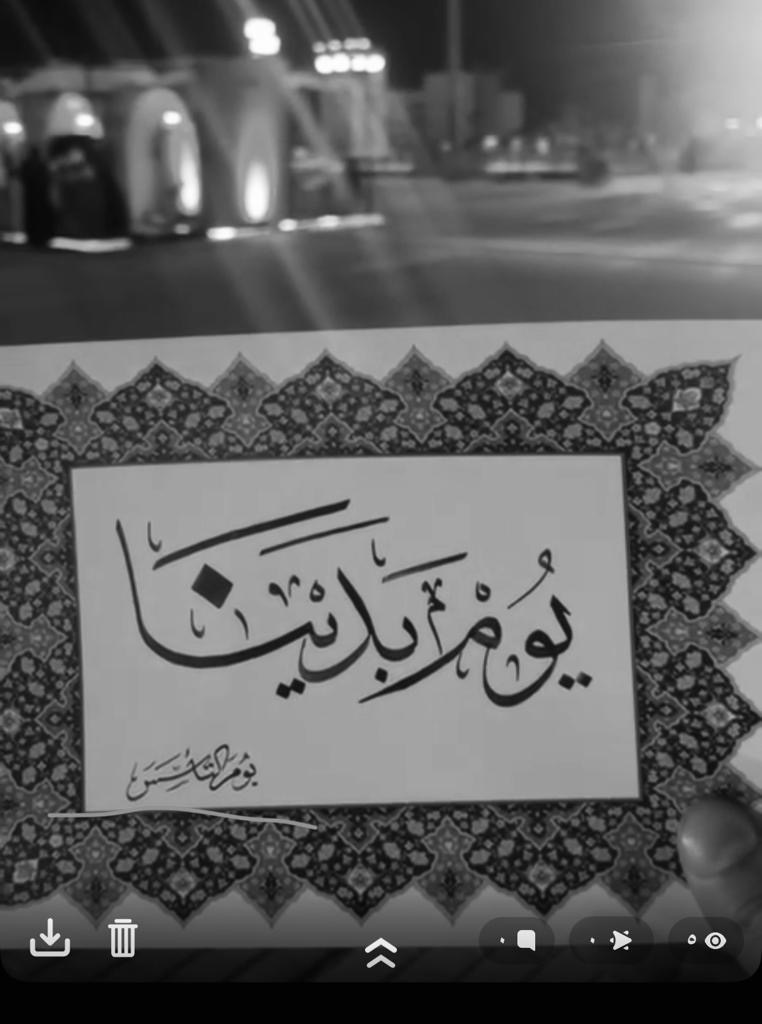 يوم بدينا
يوم التأسيس
٠ ٠ ٥